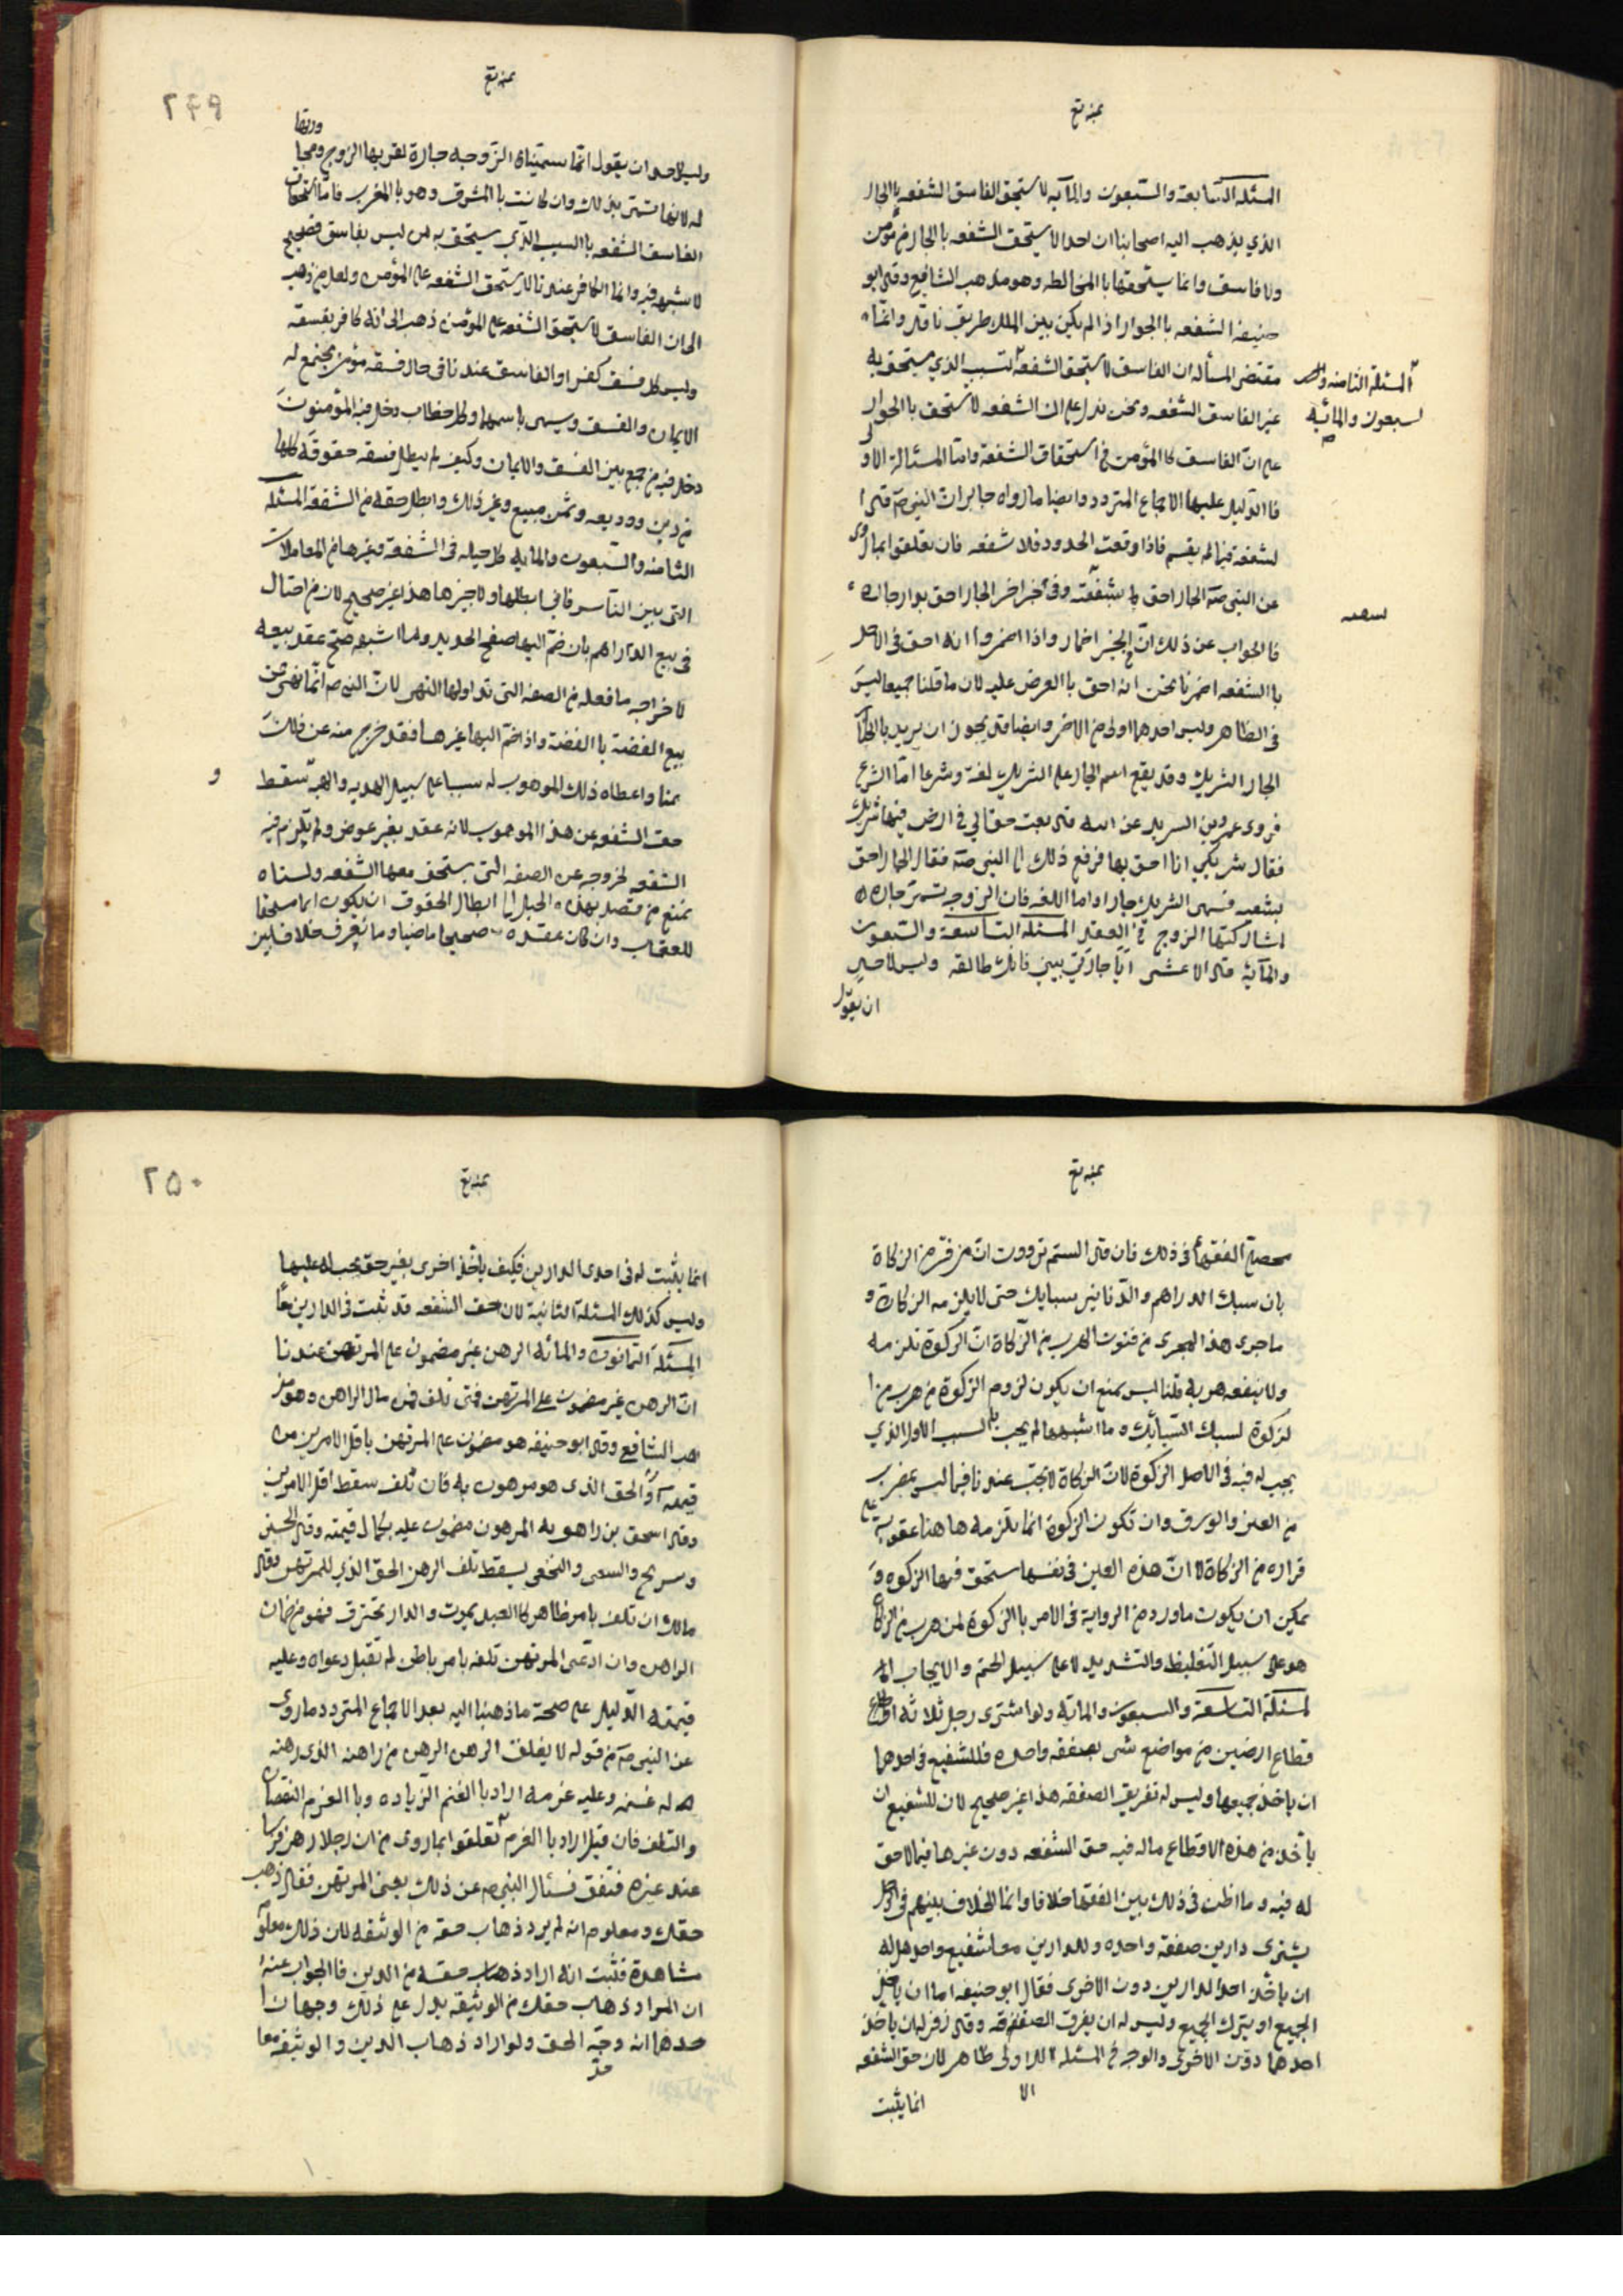 المسئله السابعة والسبعون والمآیه لا یستحق الفاسق الشفعه بالجار
الذي یذهب الیه اصحابنا ان احدا لا یستحق الشفعه باالجار من مؤمن
ولا فاسق وانما یستحقها باالمخالطه وهو مذهب الشافعی وقال ابو
حنیفه الشفعه باالجوار اذا لم یکن بین الملك طریق نافذ وانما
مقتضی المسأله ان الفاسق لا یستحق الشفعة السبب الذي یستحق به
المسئلة الثامنه وا
لسبعون والمائیه
غیر الفاسق الشفعه ونحن ندل علی ان الشفعه لا تستحق باالجوار
علی ان الفاسق کاالمؤمن فی استحقاق الشفعة وامّا المسئالة الاولی
فاالدلیل علیها الاجماع المتردد وایضا ما رواه جابر ان النبی صه قال ا
لشفعة فیما لم یقسم فاذا وقعت الحدود فلا شفعه فان تعلقوا بما روی
عن النبی صه الجار احق بشفعته وفی خبر اخر الجار احق بوار جاره
سعه
فاالجواب عن ذلك انّ فی الخبر اضمار واذا اضمروا انه احق فی الاخذ
باالشفعه اضمرنا نحن انه احق باالعرض علیه لان ما قلنا جمیعا لیس
فی الظاهر ولیس احدهما اولی من الاخر وایضا قد یجوز ان یرید باالجآ
الجار الشریك وقد یقع اسم الجار علی الشریك لغة وشرعا امّا الشرع
فروی عمرو بن السرید عن ابیه قال بعت حقا لی فی ارض فیها شریك
فقال شریکي انا احق بها فرفع ذلك الی النبی صه فقال الجار احق
بشعبه فسمی الشریك جارا واما اللغه فان الزوجه تسمی جاره
لمشارکتها الزوج فی العقد المسئله التاسعة والسبعون
والمآیة قال الاعشی ایا جارتی بینی فانك طالقه ولیس لاحد
ان یقول
٢٤٩
ولیس لاحد ان یقول انما سمیناه الزوجه جارة لقربها الزوج ومجا
ورتها
له لانها تسمی بذلك وان کانت باالمشرق وهو باالمغرب فامّا استحقاق
الفاسق الشفعه باالسبب الذي یستحق به من لیس بفاسق فصحیح
لا شبهه فیه وانما الکافر عندنا لا یستحق الشفعه علی المؤمن ولعل من ذهب
الی ان الفاسق لا یستحق الشفعه علی المؤمن ذهب الی انه کافر بفسقه
ولیس کل فسق کفرا والفاسق عندنا فی حال فسقه مؤمن یجتمع له
الایمان والفسق ویسمی باسمهما وکل خطاب دخل فیه المؤمنون
دخل فیه من جمع بین الفسق والایمان وکیف لم یبطل فسقه حقوقه کلها
من دین وودیعه وثمن مبیع وغیر ذلك وابطل حقه من الشفعة المسئله
الثامنه والسبعون والمایه کل حیله فی الشفعة وغیرها من المعاملات
التی بین الناس فانی ابطلها ولا اجیزها هذا غیر صحیح لان من احتال
فی بیع الدراهم بان ضم الیها صفح الحدید وما اشبهه صح عقد بیعه
لاخراجه ما فعله من الصفه التی تداولها النهی لان النبی ص انما نهی عن
بیع الفضة باالفضة واذا ضم الیها غیرها فقد خرج منه عن ذلك
و
ثمنا واعطاه ذلك الموهوب له سببا علی سبیل الهدیه والهبة سقط
حق الشفعه عن هذا الموهوب لانه عقد بغیر عوض ولم یلزم فیه
الشفعه لخروجه عن الصفه التی یستحق معها الشفعه ولسنا
نمنع من قصد بهذه الحیل الی ابطال الحقوق ان یکون اثما مستحقا
للعقاب وان کان عقده صحیحا ماضیا وما نعرف خلافا بین
محصلی الفقهآ فی ذلك فان قال الستم تروون ان من فر من الزکاة
بان سبك الدراهم والدنانیر سبایك حتی لا یلزمه الزکاة و
ما جری هذا المجری من فنون الهرب من الزکاة ان الزکوة تلزمه
ولا ینفعه هربه قلنا لیس یمنع ان یکون لزوم الزکوة من هرب من ا
لزکوة لسبك السبآئك وما اشبهها لم یجب بالسبب الاول الذي
یجب له فیه فی الاصل الزکوة لان الزکاة لا یجب عندنا فیما لیس بمضروب
من العین والورق وان تکون الزکوة انما تلزمه ها هنا عقوبه علی
فراره من الزکاة لا ان هذه العین فی نفسها تستحق فیها الزکوه و
یمکن ان یکون ما ورد من الروایة فی الامر باالزکوة لمن هرب من الزکا
هو علی سبیل التغلیظ والتشدید لا علی سبیل الحتم والایجاب الم
لمسئلة التاسعة والسبعون والماته ولو اشتری رجل ثلاثه اقطاع
قطاع ارضین من مواضع شتی بصفقه واحده فللشفیع فی احدها
ان یاخذ جمیعها ولیس له تفریق الصفقه هذا غیر صحیح لان للشفیع ان
یأخذ من هذه الاقطاع ماله فیه حق الشفعه دون غیرها فیما لا حق
له فیه وما اظن فی ذلك بین الفقها خلافا وانما الخلاف بینهم فی رجل
یشتری دارین صفقه واحده وللدارین معا شفیع واحد هل له
ان یأخذ احد الدارین دون الاخری فقال ابو حنیفه اما ان یأخذ
الجمیع او یترك الجمیع ولیس له ان یفرق الصفقه وقال زفر له ان یاخذ
احدهما دون الاخری والوجه فی المسئله الاولی ظاهر لان حق الشفعه
انما یثبت
٢٥٠
انما یثبت له فی احدی الدارین فکیف یأخذ اخری بغیر حق یجب له علیها
ولیس کذلك المسئلة الثانیة لان حق الشفعه قد ثبت فی الدارین معًا
المسئلة الثمانون والمائه الرهن غیر مضمون علی المرتهن عندنا
ان الرهن غیر مضمون علی المرتهن فمتی تلف فمن مال الراهن وهو مذ
هب الشافعی وقال ابو حنیفه هو مضمون علی المرتهن باقل الامرین من
قیمته او الحق الذی هو مرهون به فان تلف سقط اقل الامرین
وقال اسحق بن راهویه المرهون مضمون علیه بکمال قیمته وقال الحسن
وسریح والسعی والنخعی یسقط تلف الرهن الحق الذي للمرتهن وقال
مالك ان تلف بامر ظاهر کاالعبد یموت والدار تحترق فهو من ضمان
الراهن وان ادعی المرتهن تلفه بامر باطن لم تقبل دعواه وعلیه
قیمته الدلیل علی صحة ما ذهبنا الیه بعد الاجماع المتردد ما روی
عن النبی صه من قوله لا یغلق الرهن الرهن من راهنه الذی رهنه
له غنمه وعلیه غرمه اراد باالغنم الزیاده وباالغرم النقصان
والتلف فان قیل اراد باالغرم تعلقوا بما روی من ان رجلا رهن فرسا
عند غیره فنفق فسئال النبی ص عن ذلك یعنی المرتهن فقال ذهب
حقك ومعلوم انه لم یرد ذهاب حقه من الوثیقه لان ذلك معلوم
مشاهدة فثبت انه اراد ذهاب حقه من الدین فاالجواب عنه
ان المراد ذهاب حقك من الوثیقه یدل علی ذلك وجهان ا
حدهما انه وحّد الحق ولو اراد ذهاب الدین والوثیقه معا